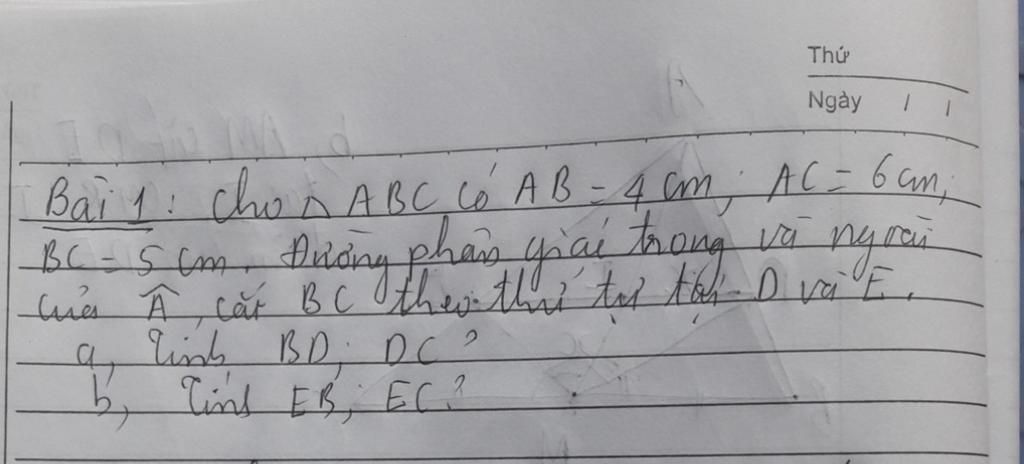 Thứ
Ngày / /
Bài 1: Cho △ ABC có AB = 4 cm; AC = 6 cm;
BC = 5 cm. Đường phân giác trong và ngoài
của Â, cắt BC theo thứ tự tại D và E.
a, Tính BD; DC?
b, Tính EB; EC?